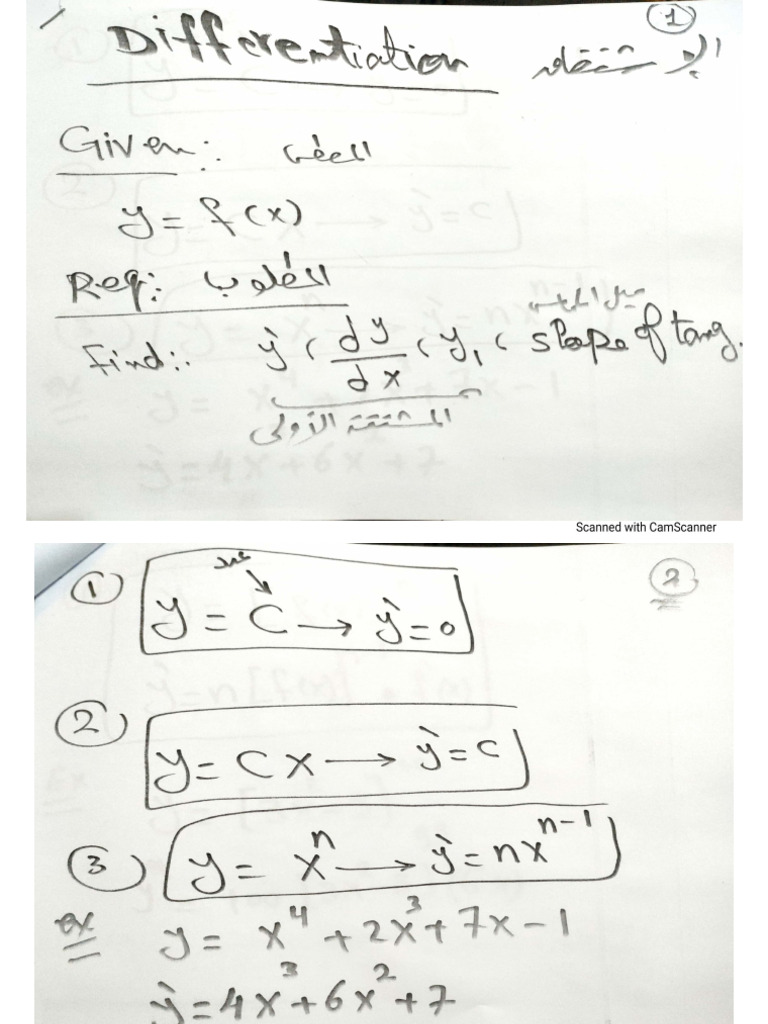 1
Differentiation الإشتقاق
Given:. المعطى
y = f(x)
Req:. المطلوب
Find:. ỳ , dy/dx , y₁ , slope of tang.
ميل المماس
المشتقة الأولى
Scanned with CamScanner
2
عدد
① y = C → ỳ = 0
② y = Cx → ỳ = C
③ y = xⁿ → ỳ = nxⁿ⁻¹
ex y = x⁴ + 2x³ + 7x - 1
ỳ = 4x³ + 6x² + 7